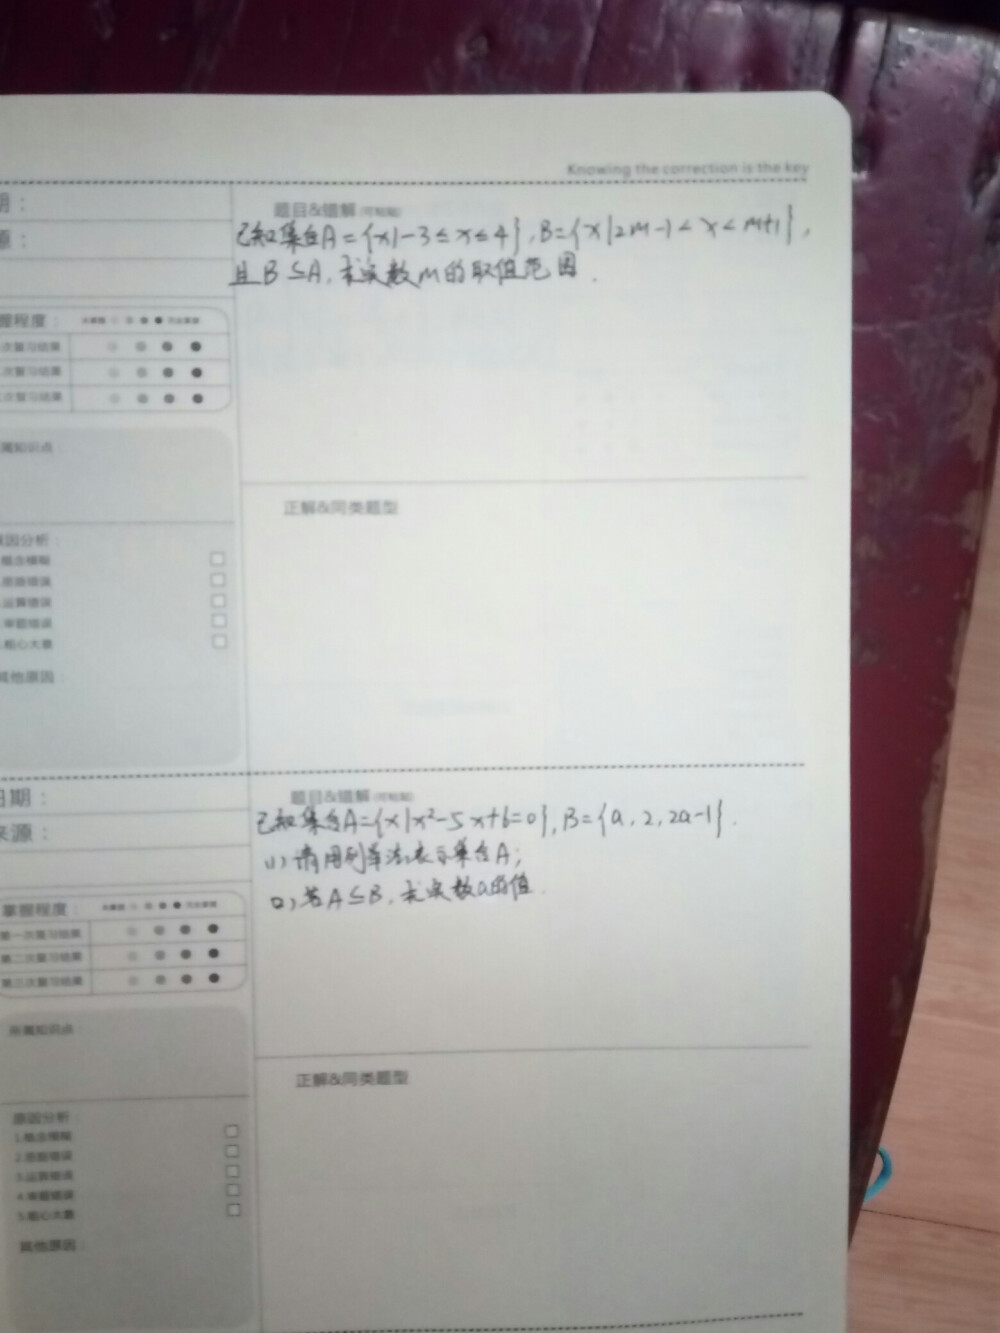 Knowing the correction is the key
期：
源：
题目&错解(可粘贴)
已知集合A={x|-3≤x≤4},B={x|2m-1<x<m+1},
且B⊆A,求实数m的取值范围.
握程度：
次复习结果
次复习结果
次复习结果
属知识点：
正解&同类题型
因分析：
概念模糊
思路错误
运算错误
审题错误
粗心大意
其他原因：
日期：
来源：
题目&错解(可粘贴)
已知集合A={x|x²-5x+6=0},B={a,2,2a-1}.
(1)请用列举法表示集合A;
(2)若A⊆B,求实数a的值.
掌握程度：
第一次复习结果
第二次复习结果
第三次复习结果
所属知识点：
正解&同类题型
原因分析：
1.概念模糊
2.思路错误
3.运算错误
4.审题错误
5.粗心大意
其他原因：